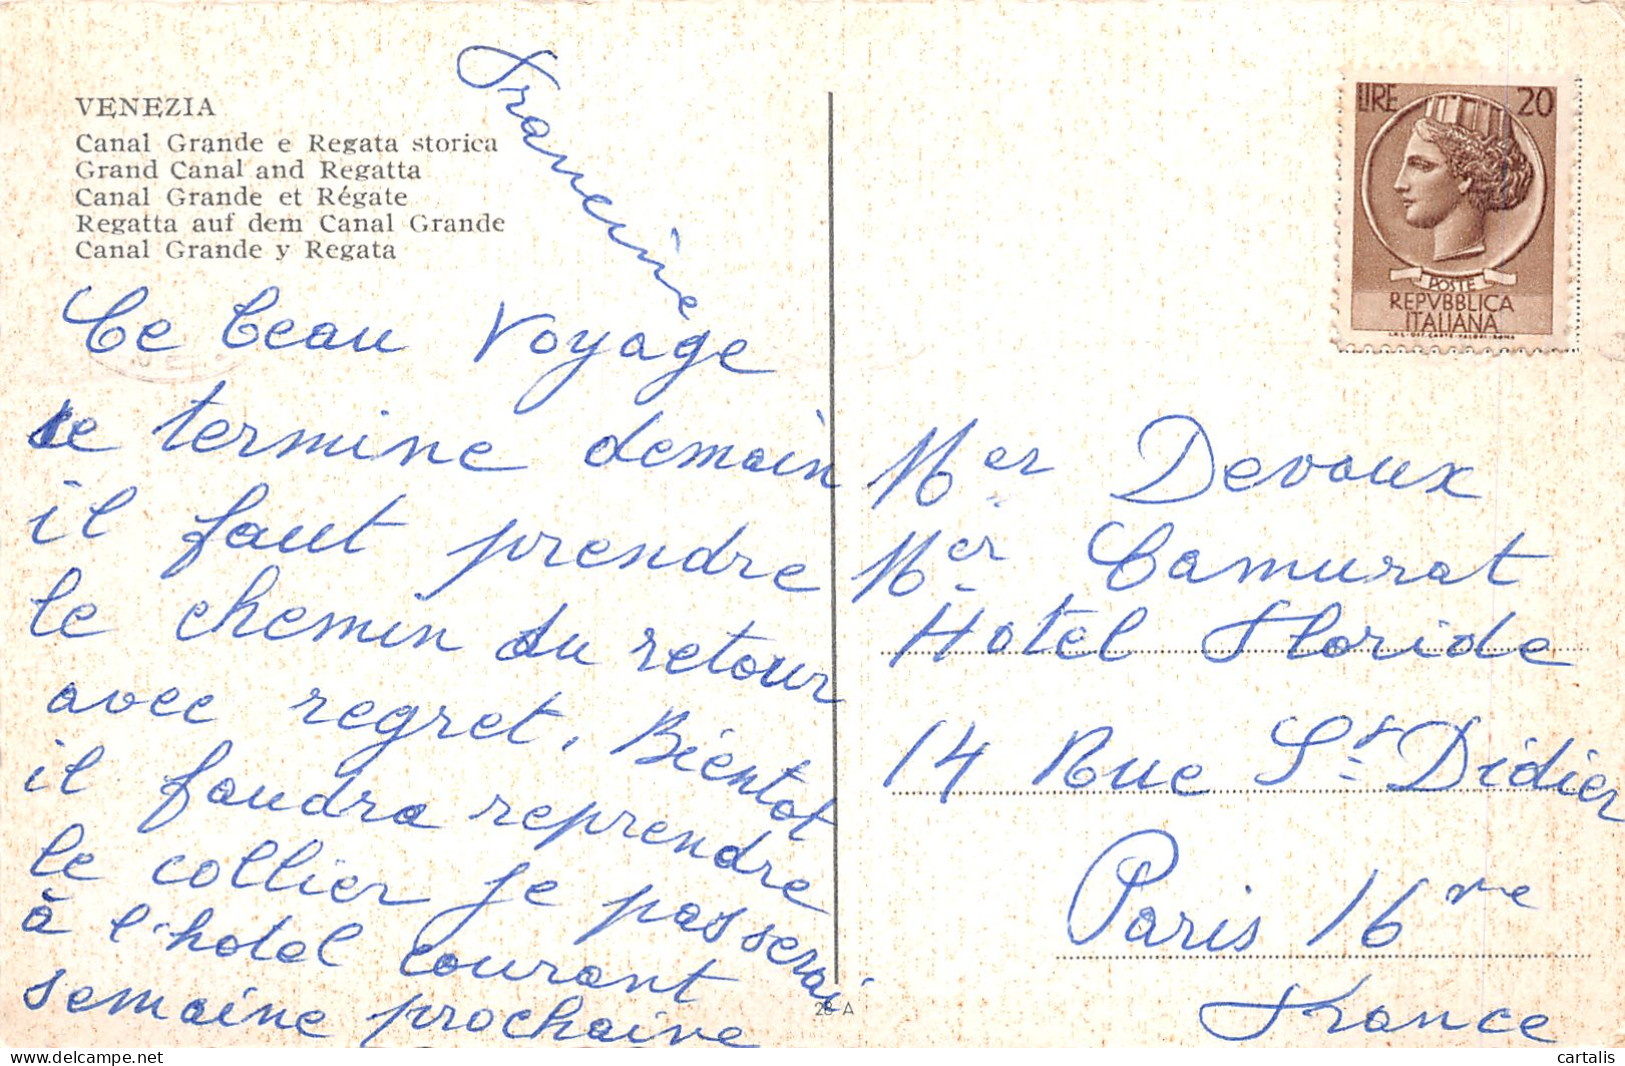 VENEZIA
Canal Grande e Regata storica
Grand Canal and Regatta
Canal Grande et Régate
Regatta auf dem Canal Grande
Canal Grande y Regata
Francine
Ce beau voyage
se termine demain
il faut prendre
le chemin du retour
avec regret. Bientot
il faudra reprendre
le collier je passerai
à l'hotel courant
semaine prochaine
28-A
LIRE 20
POSTE
REPVBBLICA
ITALIANA
Mer Devaux
Mer Camurat
Hotel Floride
14 Rue St Didier
Paris 16me
France
cartalis